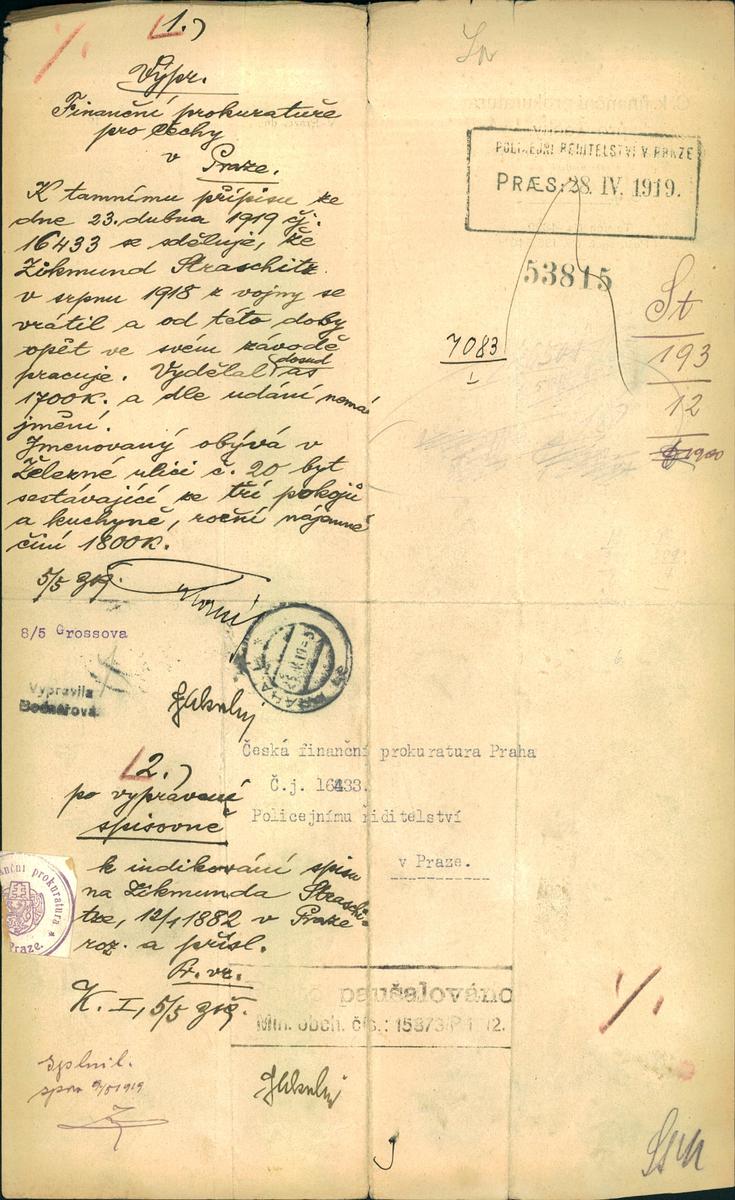 1.)
Výpr.
Finanční prokuratuře
pro Čechy
v Praze.
K tamnímu přípisu ze
dne 23. dubna 1919 čj.
16433 se sděluje, že
Zikmund Straschitz
v srpnu 1918 z vojny se
vrátil a od této doby
opět ve svém závodě
pracuje. Vydělal dosud as
1700K. a dle udání nemá
jmění.
Jmenovaný obývá v
Železné ulici č. 20 byt
sestávající ze tří pokojů
a kuchyně, roční nájemné
činí 1800K.
5/5 919.
8/5 Grossova
Vypravila
Bednářová.
2.)
po vypravení
spisovně
k indikování spisu
na Zikmunda Straschi-
tze, 12/1 1882 v Praze
roz. a přísl.
Pr. vz.
K. I, 5/5 919.
Splnil.
9/5 1919
POLICEJNÍ ŘEDITELSTVÍ V PRAZE
PRÆS: 28. IV. 1919.
53815
7083
St
193
12
1900
Česká finanční prokuratura Praha
Č.j. 16433.
Policejnímu řiditelství
v Praze.
finanční prokuratura
Praze.
PRAHA
paušalováno
Min. obch. čís.: 15373/P 1912.